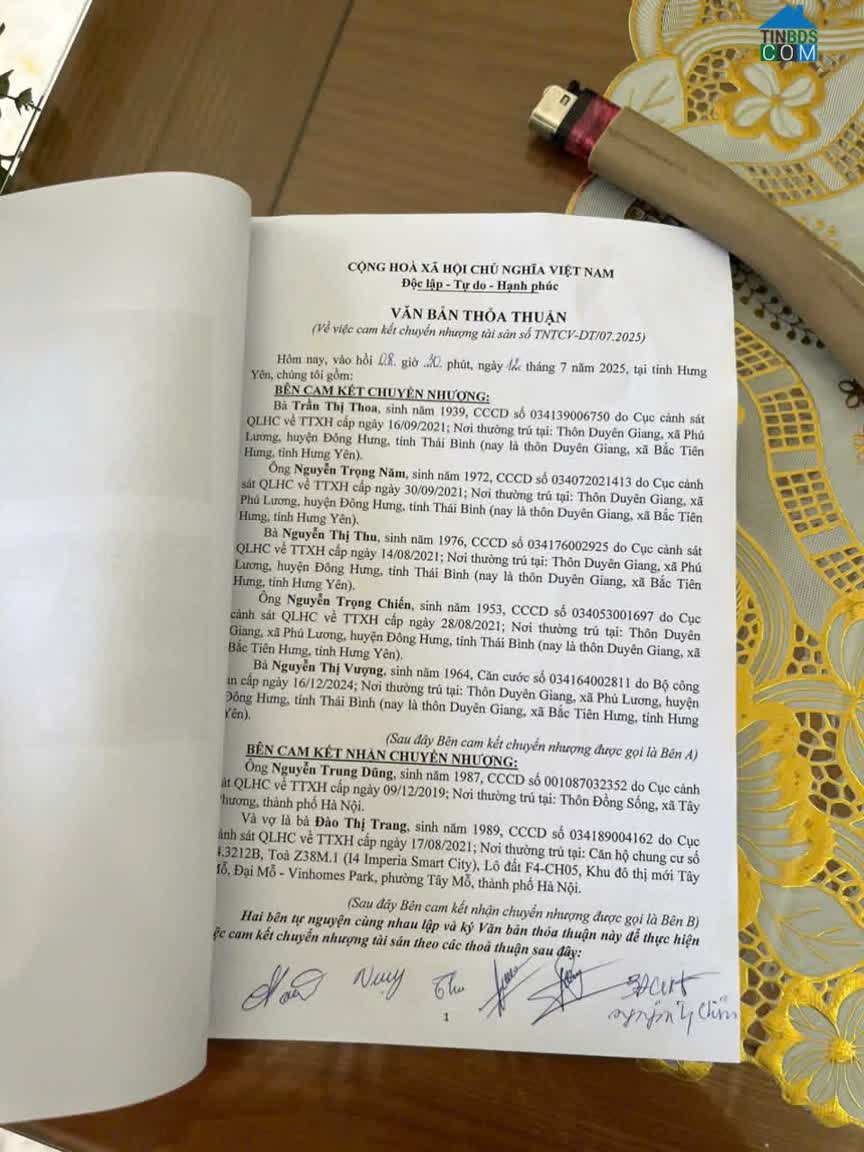 TINBDS
COM
CỘNG HOÀ XÃ HỘI CHỦ NGHĨA VIỆT NAM
Độc lập - Tự do - Hạnh phúc
VĂN BẢN THỎA THUẬN
(Về việc cam kết chuyển nhượng tài sản số TNTCV-DT/07.2025)
Hôm nay, vào hồi 08. giờ 30. phút, ngày 12. tháng 7 năm 2025, tại tỉnh Hưng
Yên, chúng tôi gồm:
BÊN CAM KẾT CHUYỂN NHƯỢNG:
Bà Trần Thị Thoa, sinh năm 1939, CCCD số 034139006750 do Cục cảnh sát
QLHC về TTXH cấp ngày 16/09/2021; Nơi thường trú tại: Thôn Duyên Giang, xã Phú
Lương, huyện Đông Hưng, tỉnh Thái Bình (nay là thôn Duyên Giang, xã Bắc Tiên
Hưng, tỉnh Hưng Yên).
Ông Nguyễn Trọng Năm, sinh năm 1972, CCCD số 034072021413 do Cục cảnh
sát QLHC về TTXH cấp ngày 30/09/2021; Nơi thường trú tại: Thôn Duyên Giang, xã
Phú Lương, huyện Đông Hưng, tỉnh Thái Bình (nay là thôn Duyên Giang, xã Bắc Tiên
Hưng, tỉnh Hưng Yên).
Bà Nguyễn Thị Thu, sinh năm 1976, CCCD số 034176002925 do Cục cảnh sát
QLHC về TTXH cấp ngày 14/08/2021; Nơi thường trú tại: Thôn Duyên Giang, xã Phú
Lương, huyện Đông Hưng, tỉnh Thái Bình (nay là thôn Duyên Giang, xã Bắc Tiên
Hưng, tỉnh Hưng Yên).
Ông Nguyễn Trọng Chiến, sinh năm 1953, CCCD số 034053001697 do Cục
cảnh sát QLHC về TTXH cấp ngày 28/08/2021; Nơi thường trú tại: Thôn Duyên
Giang, xã Phú Lương, huyện Đông Hưng, tỉnh Thái Bình (nay là thôn Duyên Giang, xã
Bắc Tiên Hưng, tỉnh Hưng Yên).
Bà Nguyễn Thị Vượng, sinh năm 1964, Căn cước số 034164002811 do Bộ công
an cấp ngày 16/12/2024; Nơi thường trú tại: Thôn Duyên Giang, xã Phú Lương, huyện
Đông Hưng, tỉnh Thái Bình (nay là thôn Duyên Giang, xã Bắc Tiên Hưng, tỉnh Hưng
Yên).
(Sau đây Bên cam kết chuyển nhượng được gọi là Bên A)
BÊN CAM KẾT NHẬN CHUYỂN NHƯỢNG:
Ông Nguyễn Trung Dũng, sinh năm 1987, CCCD số 001087032352 do Cục cảnh
sát QLHC về TTXH cấp ngày 09/12/2019; Nơi thường trú tại: Thôn Đồng Sống, xã Tây
Phương, thành phố Hà Nội.
Và vợ là bà Đào Thị Trang, sinh năm 1989, CCCD số 034189004162 do Cục
cảnh sát QLHC về TTXH cấp ngày 17/08/2021; Nơi thường trú tại: Căn hộ chung cư số
3212B, Toà Z38M.1 (I4 Imperia Smart City), Lô đất F4-CH05, Khu đô thị mới Tây
Mỗ, Đại Mỗ - Vinhomes Park, phường Tây Mỗ, thành phố Hà Nội.
(Sau đây Bên cam kết nhận chuyển nhượng được gọi là Bên B)
Hai bên tự nguyện cùng nhau lập và ký Văn bản thỏa thuận này để thực hiện
việc cam kết chuyển nhượng tài sản theo các thoả thuận sau đây:
Thu
1